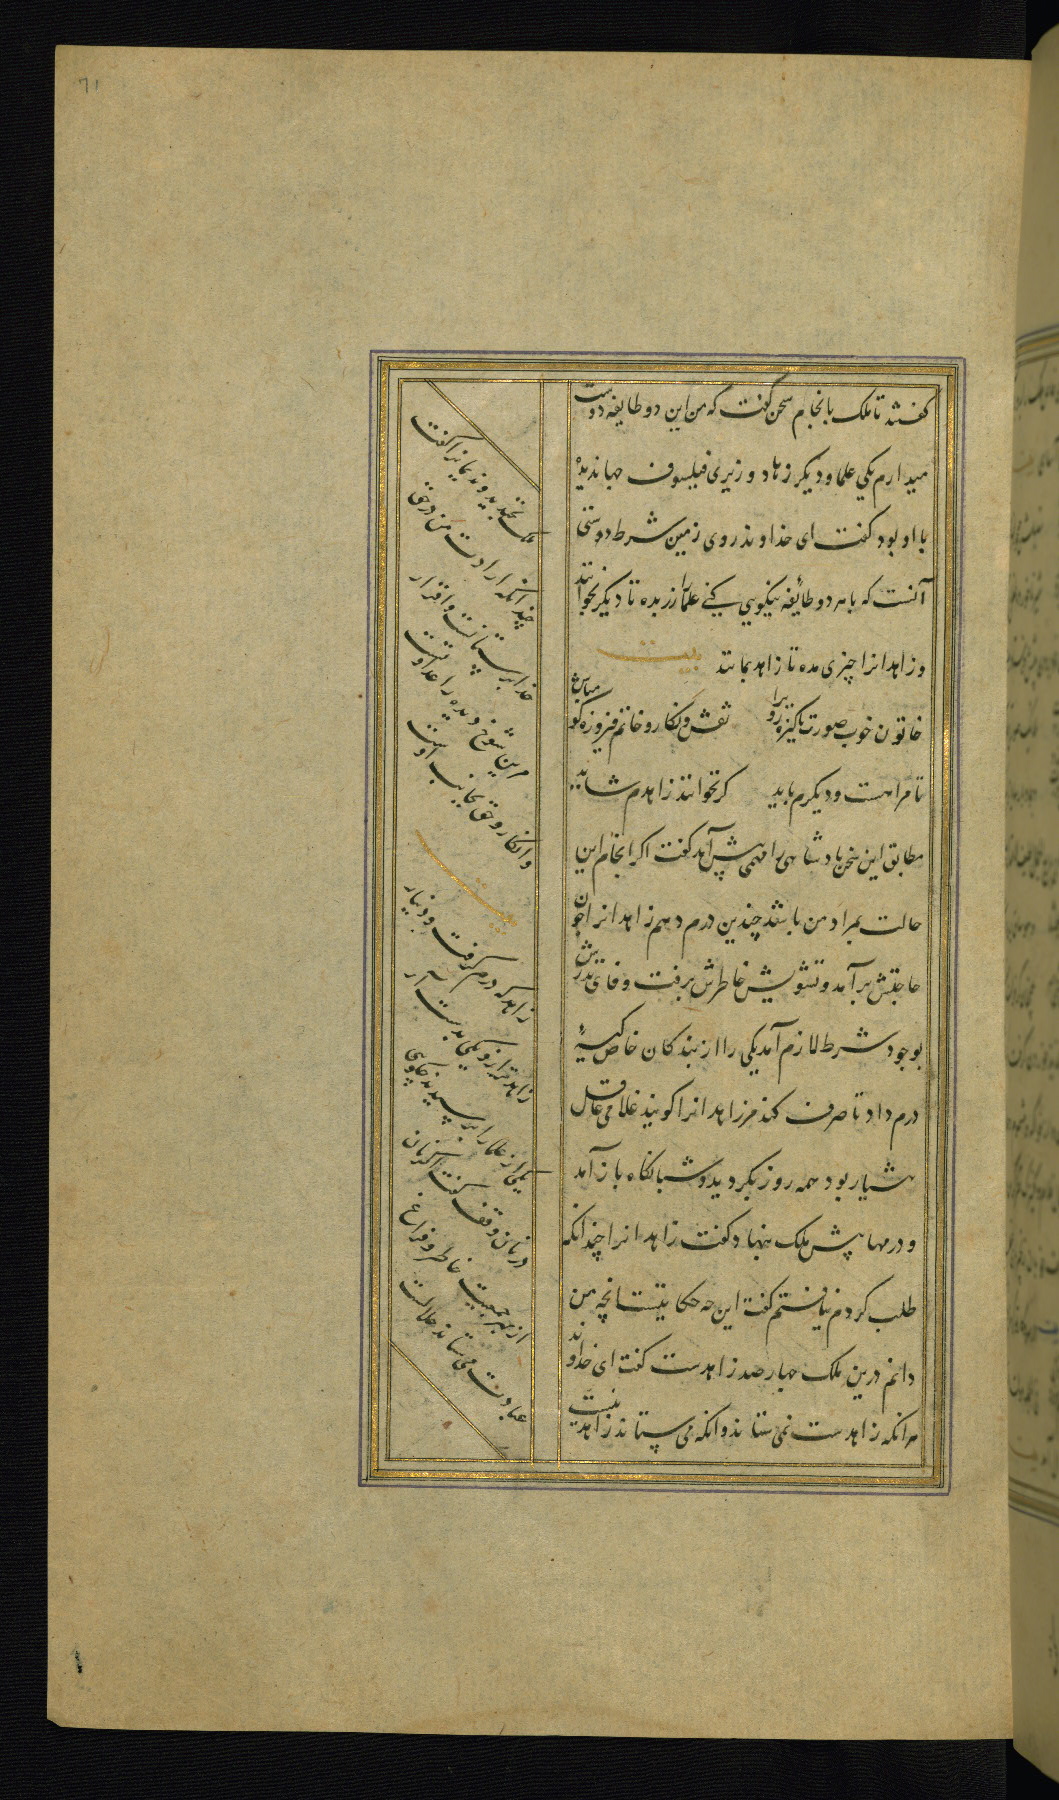 گفتند تا ملک بانجام سخن گفت که من این دو طایفه دوست
میدارم یکی علما و دیگر زهاد وزیری فیلسوف جهاندیده
با او بود گفت ای خداوند روی زمین شرط دوستی
آنست که با هر دو طائفه نیکویی کنی علما را زر بده تا دیگر بخوانند
و زاهدانرا چیزی مده تا زاهد بمانند بیت
خاتون خوب صورت پاکیزه روی را نقش و نگار و خاتم فیروزه گو مباش
تا مرا هست و دیگرم باید گر نخوانند زاهدم شاید
مطابق این سخن پادشاهی را مهمی پیش آمد گفت اگر انجام این
حالت بمراد من باشد چندین درم دهم زاهدانرا چون
حاجتش برآمد و تشویش خاطرش برفت وفای نذرش
بوجود شرط لازم آمد یکی را از بندگان خاص کیسهٔ
درم داد تا صرف کند مر زاهدانرا گویند غلامی عاقل
هشیار بود همه روز بگردید و شبانگاه باز آمد
و درمها پیش ملک بنهاد گفت زاهدانرا چندانکه
طلب کردم نیافتم گفت این چه حکایتست انچه من
دانم درین ملک چهارصد زاهدست گفت ای خداوند
هر انکه زاهدست نمی ستاند و انکه می ستاند زاهد نیست
ملک بخندید و ندیمانرا گفت
چندانکه ارادت من در حق
خداپرستانست و اقرار
مر این شوخ دیده را عداوتست
و انکار و حق بجانب اوست
بیت
زاهد که درم گرفت و دینار
زاهدتر ازو یکی بدست آر
یکی از علما را پرسیدند چگویی
در نان وقف گفت اگر نان
از بهر جمعیت خاطر و فراغ
عبادت می ستاند حلالست
٦١